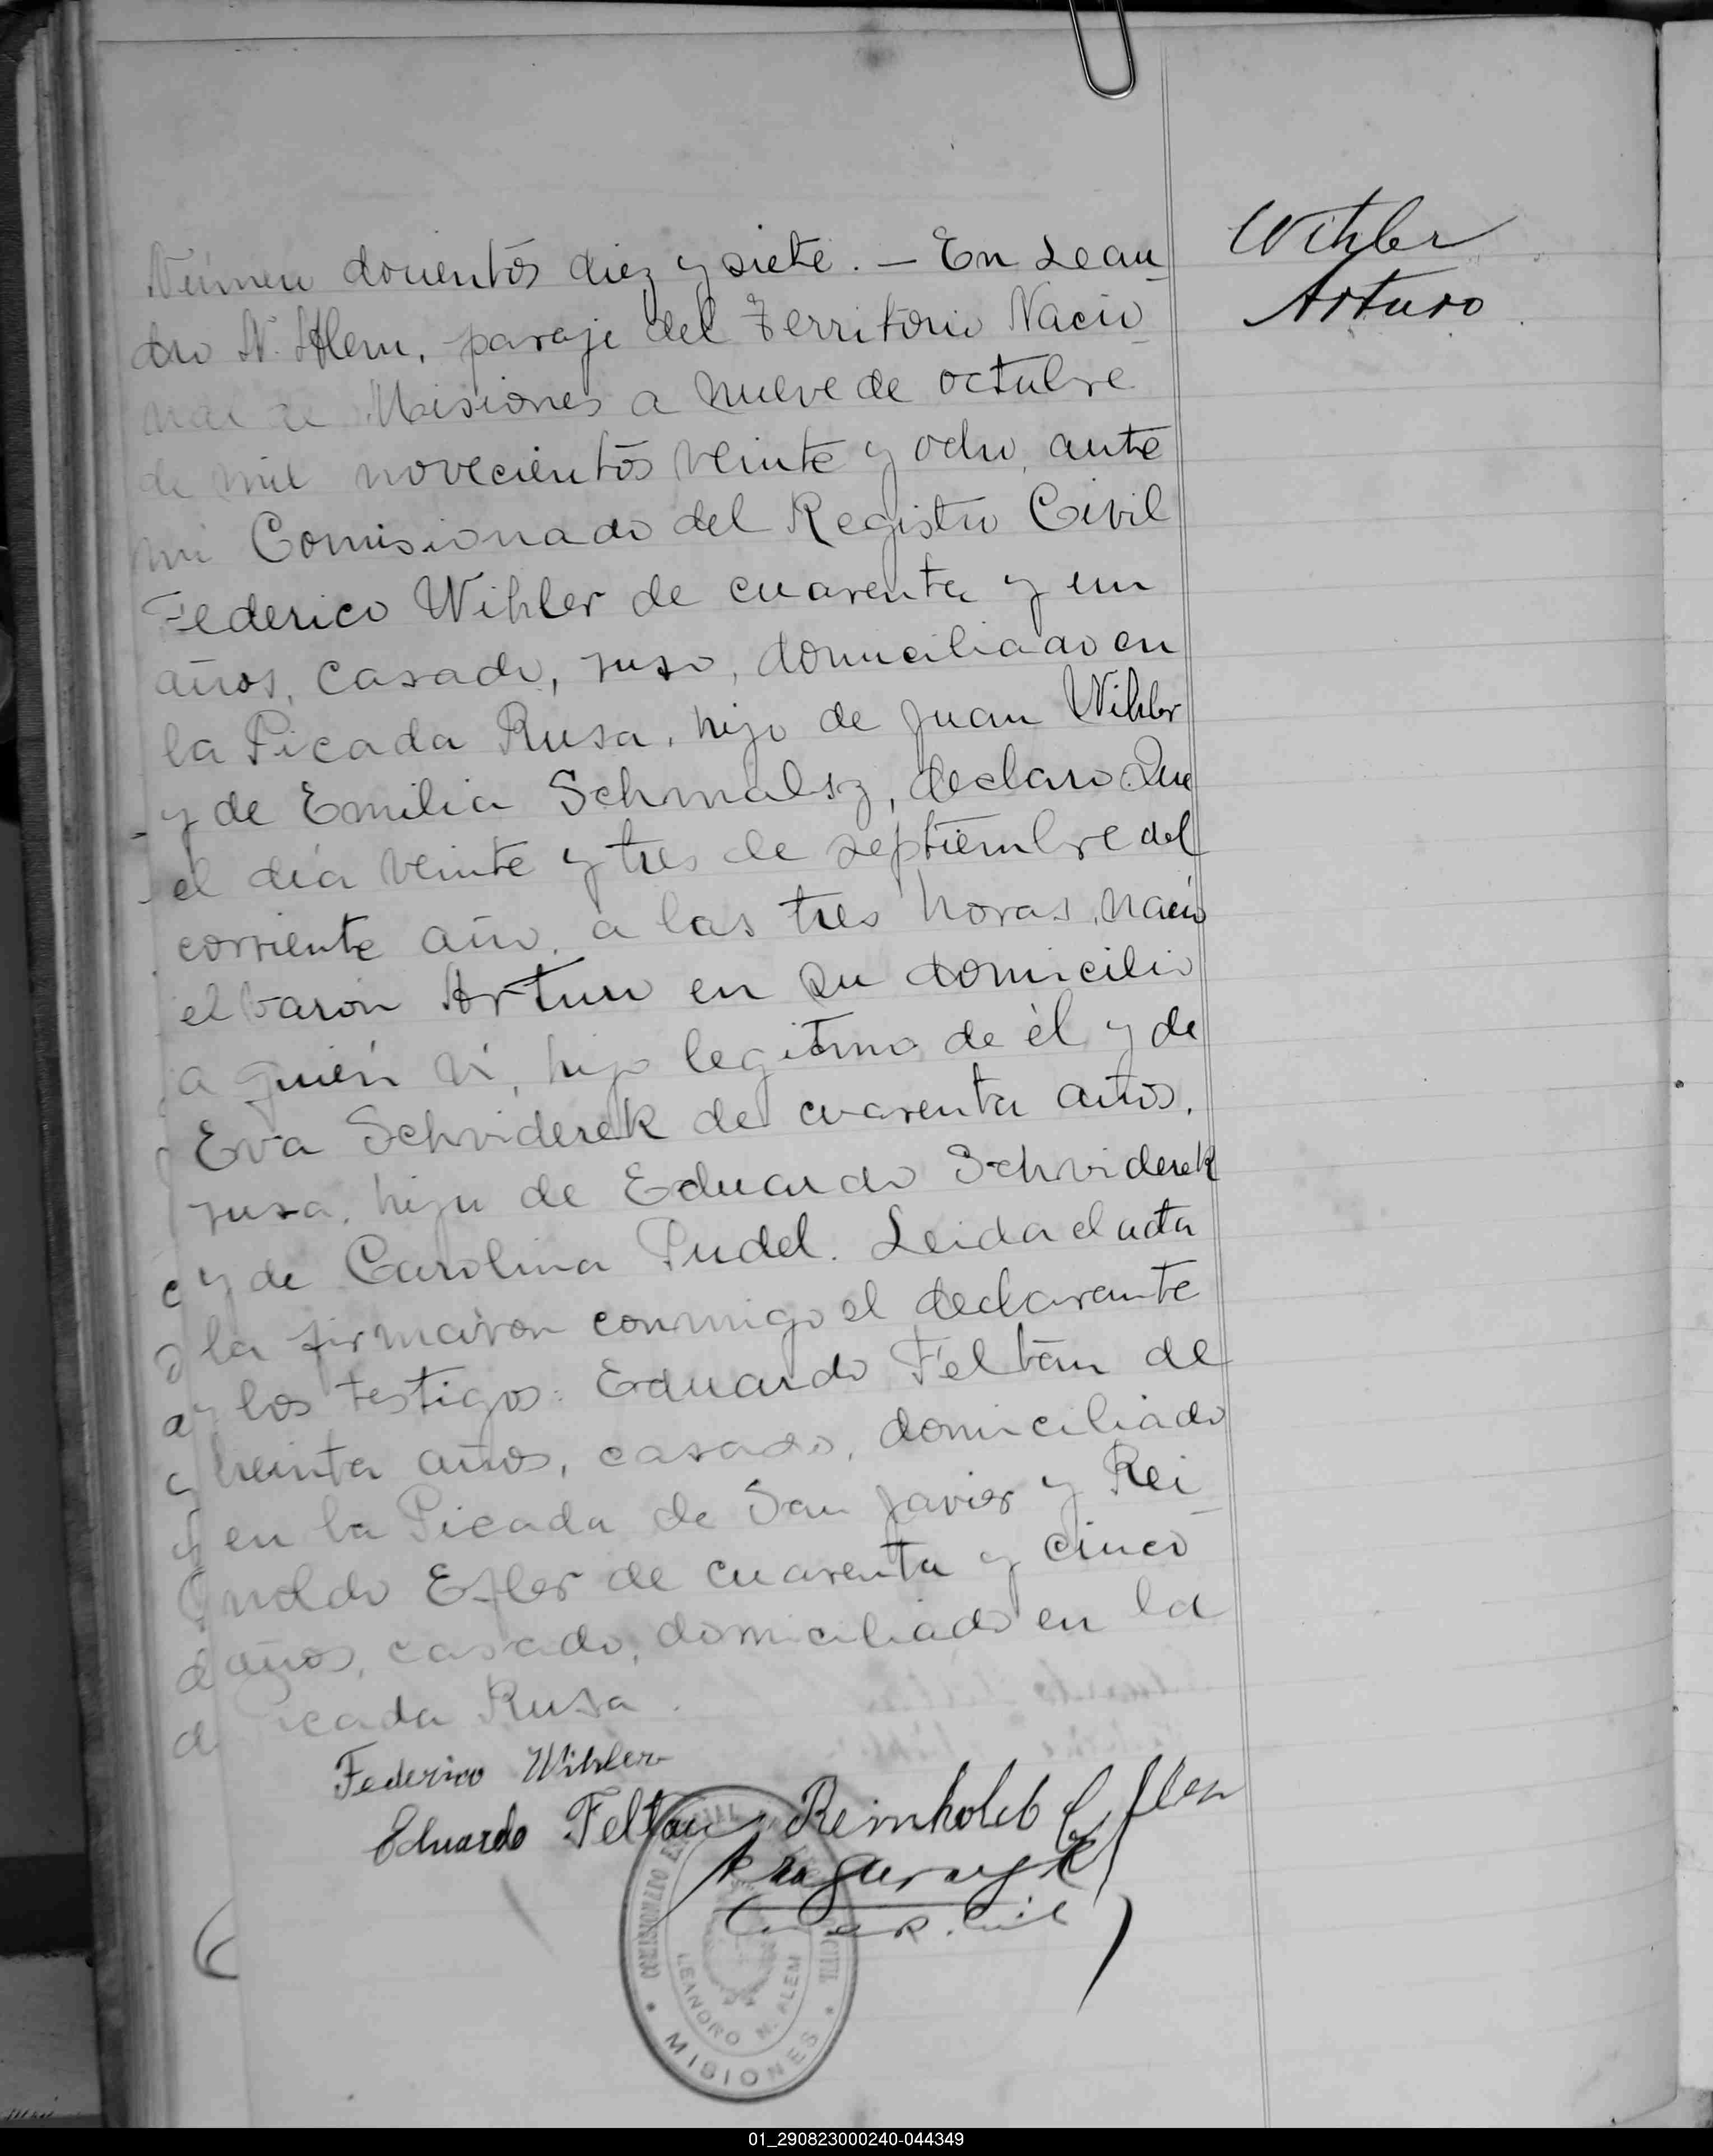 Wihler
Arturo
Número docientos diez y siete. — En Lean
dro N. Alem, paraje del Territorio Nacio
nal de Misiones a nueve de octubre
de mil novecientos veinte y ocho, ante
mi Comisionado del Registro Civil
Federico Wihler de cuarenta y un
años, casado, ruso, domiciliado en
la Picada Rusa, hijo de Juan Wihler
y de Emilia Schmalsz, declaro: Que
el día veinte y tres de septiembre del
corriente año, a las tres horas, nació
el varón Arturo en su domicilio
a quién ví, hijo legitimo de él y de
Eva Schviderek de cuarenta años,
rusa, hija de Eduardo Schviderek
y de Carolina Pudel. Leida el acta
la firmaron conmigo el declarante
y los testigos: Eduardo Feltan de
treinta años, casado, domiciliado
en la Picada de San Javier y Rei
noldo Efler de cuarenta y cinco
años, casado, domiciliado en la
Picada Rusa.
Federico Wihler
Eduardo Feltan Reinholdt Efler
COMISIONADO CIVIL
LEANDRO N. ALEM
MISIONES
01_290823000240-044349